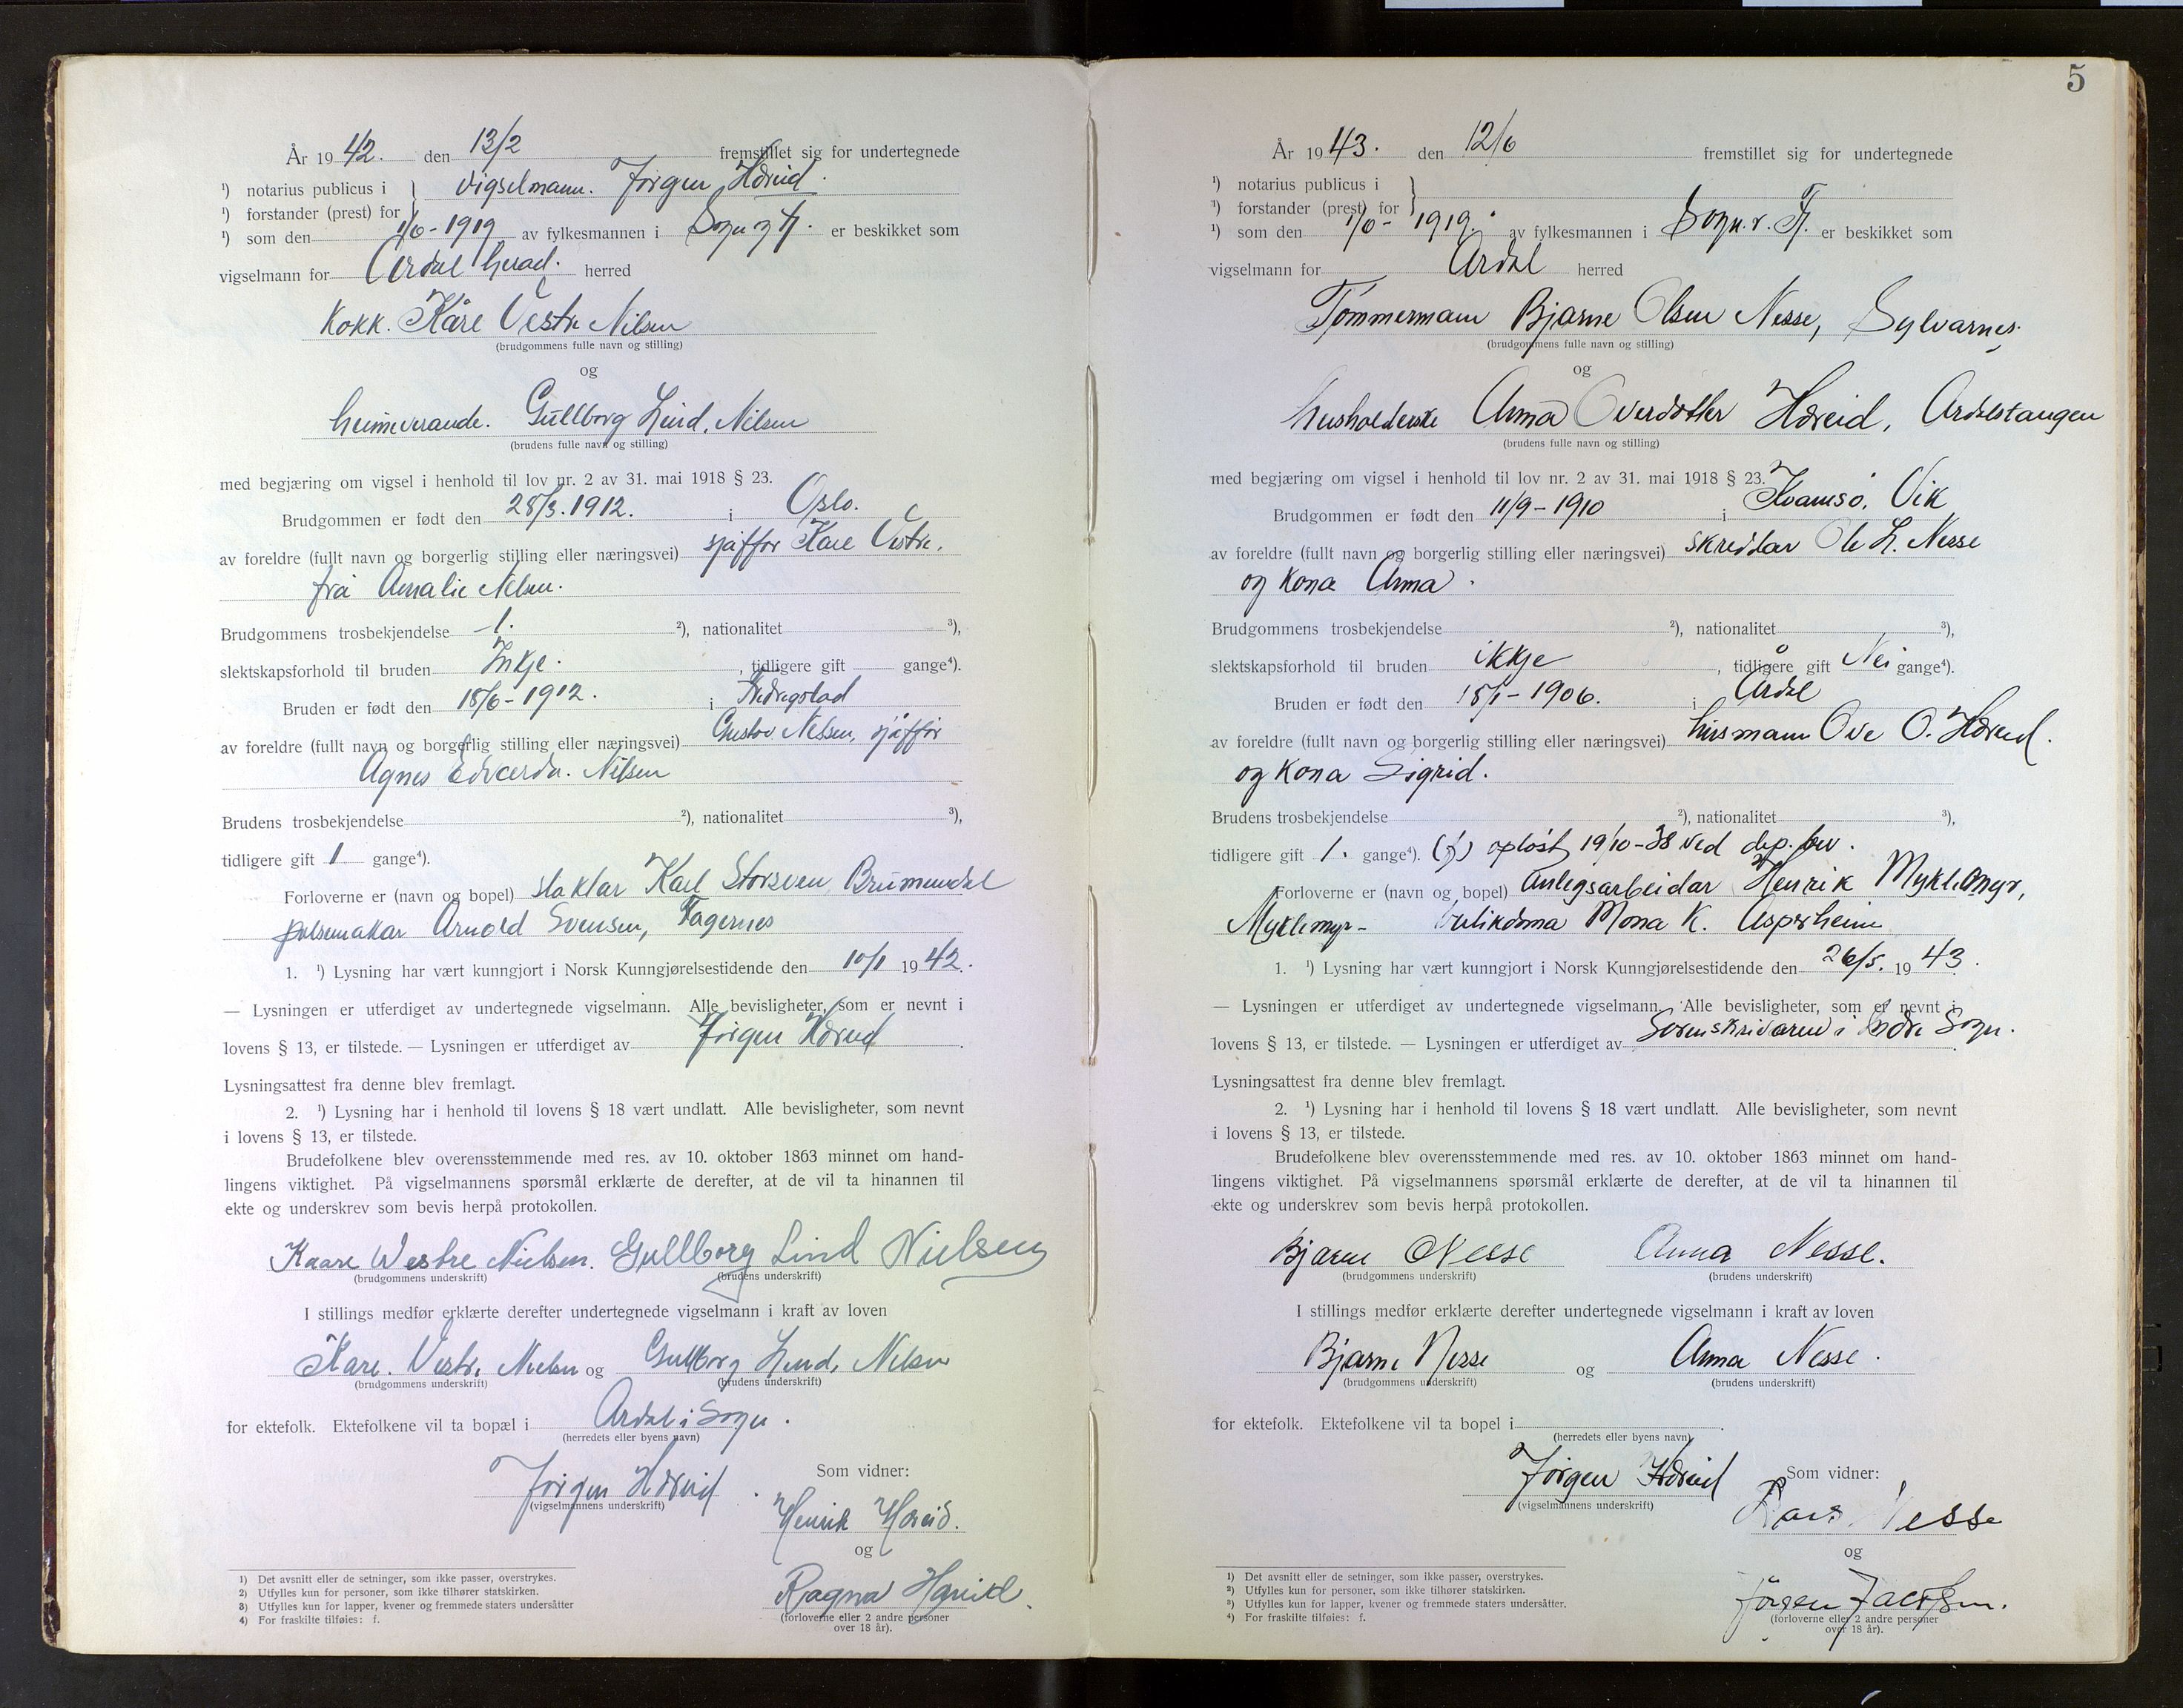 År 1942. den 13/2 fremstillet sig for undertegnede
¹) notarius publicus i } vigselmann. Jørgen Hæreid.
¹) forstander (prest) for
¹) som den 1/6-1919 av fylkesmannen i Sogn og Fj. er beskikket som
vigselmann for Årdal herad. herred
Kokk. Kåre Vestre Nilsen
(brudgommens fulle navn og stilling)
og
heimeverande. Gullborg Lind. Nilsen
(brudens fulle navn og stilling)
med begjæring om vigsel i henhold til lov nr. 2 av 31. mai 1918 § 23.
Brudgommen er født den 28/3. 1912. i Oslo.
av foreldre (fullt navn og borgerlig stilling eller næringsvei) sjåffør Kåre Vestre.
frå Amalie Nilsen.
Brudgommens trosbekjendelse 1. ²), nationalitet ³),
slektskapsforhold til bruden Inkje. , tidligere gift gange⁴).
Bruden er født den 18/6-1912. i Fredrikstad
av foreldre (fullt navn og borgerlig stilling eller næringsvei) Gustav Nilssen, sjåffør
Agnes Edvarda. Nilsen
Brudens trosbekjendelse ²), nationalitet ³),
tidligere gift 1 gange⁴).
Forloverne er (navn og bopel) slaktar Karl Storsveen Brumundal
pølsemakar Arnold Svensen, Fagernes
1. ¹) Lysning har vært kunngjort i Norsk Kunngjørelsestidende den 10/1 1942.
— Lysningen er utferdiget av undertegnede vigselmann. Alle bevisligheter, som er nevnt i
lovens § 13, er tilstede. — Lysningen er utferdiget av Jørgen Hæreid.
Lysningsattest fra denne blev fremlagt.
2. ¹) Lysning har i henhold til lovens § 18 vært undlatt. Alle bevisligheter, som nevnt
i lovens § 13, er tilstede.
Brudefolkene blev overensstemmende med res. av 10. oktober 1863 minnet om hand-
lingens viktighet. På vigselmannens spørsmål erklærte de derefter, at de vil ta hinannen til
ekte og underskrev som bevis herpå protokollen.
Kaare Westre Nielsen. Gullborg Lind Nielsen
(brudgommens underskrift) (brudens underskrift)
I stillings medfør erklærte derefter undertegnede vigselmann i kraft av loven
Kåre. Vestre Nielsen og Gullborg Lind, Nilsen
(brudgommens underskrift) (brudens underskrift)
for ektefolk. Ektefolkene vil ta bopæl i Årdal i Sogn.
(herredets eller byens navn)
Jørgen Hæreid.
(vigselmannens underskrift)
Som vidner:
Henrik Hæreid.
og
Ragna Hæreid.
(forloverne eller 2 andre personer
over 18 år).
1) Det avsnitt eller de setninger, som ikke passer, overstrykes.
2) Utfylles kun for personer, som ikke tilhører statskirken.
3) Utfylles kun for lapper, kvener og fremmede staters undersåtter
4) For fraskilte tilføies: f.
5
År 1943. den 12/6 fremstillet sig for undertegnede
¹) notarius publicus i }
¹) forstander (prest) for
¹) som den 1/6-1919. av fylkesmannen i Sogn. o. Fj. er beskikket som
vigselmann for Årdal herred
Tømmermann Bjarne Olsen Nesse, Sylvarnes.
(brudgommens fulle navn og stilling)
og
husholderske Anna Overdotter Hæreid, Årdalstangen
(brudens fulle navn og stilling)
med begjæring om vigsel i henhold til lov nr. 2 av 31. mai 1918 § 23.
Brudgommen er født den 11/9-1910 i Kvamsø, Vik
av foreldre (fullt navn og borgerlig stilling eller næringsvei) skreddar Ole L. Nesse
og kona Anna.
Brudgommens trosbekjendelse ²), nationalitet ³),
slektskapsforhold til bruden ikkje , tidligere gift Nei gange⁴).
Bruden er født den 15/1-1906. i Årdal
av foreldre (fullt navn og borgerlig stilling eller næringsvei) husmann Ove O. Hæreid.
og kona Sigrid.
Brudens trosbekjendelse ²), nationalitet ³),
tidligere gift 1. gange⁴). (f) opløst 19/10-38 ved dep. bev.
Forloverne er (navn og bopel) Anlegsarbeidar Henrik Myklemyr,
Myklemyr- butikdama Mona K. Asperheim
1. ¹) Lysning har vært kunngjort i Norsk Kunngjørelsestidende den 26/5. 1943.
— Lysningen er utferdiget av undertegnede vigselmann. Alle bevisligheter, som er nevnt i
lovens § 13, er tilstede. — Lysningen er utferdiget av Sorenskrivaren i Indre Sogn.
Lysningsattest fra denne blev fremlagt.
2. ¹) Lysning har i henhold til lovens § 18 vært undlatt. Alle bevisligheter, som nevnt
i lovens § 13, er tilstede.
Brudefolkene blev overensstemmende med res. av 10. oktober 1863 minnet om hand-
lingens viktighet. På vigselmannens spørsmål erklærte de derefter, at de vil ta hinannen til
ekte og underskrev som bevis herpå protokollen.
Bjarne Nesse Anna Nesse.
(brudgommens underskrift) (brudens underskrift)
I stillings medfør erklærte derefter undertegnede vigselmann i kraft av loven
Bjarne Nesse og Anna Nesse.
(brudgommens underskrift) (brudens underskrift)
for ektefolk. Ektefolkene vil ta bopel i .
(herredets eller byens navn)
Jørgen Hæreid
(vigselmannens underskrift)
Som vidner:
Lars Nesse
og
Jørgen Jacobsen.
(forloverne eller 2 andre personer
over 18 år).
1) Det avsnitt eller de setninger, som ikke passer, overstrykes.
2) Utfylles kun for personer, som ikke tilhører statskirken.
3) Utfylles kun for lapper, kvener og fremmede staters undersåtter.
4) For fraskilte tilføies: f.